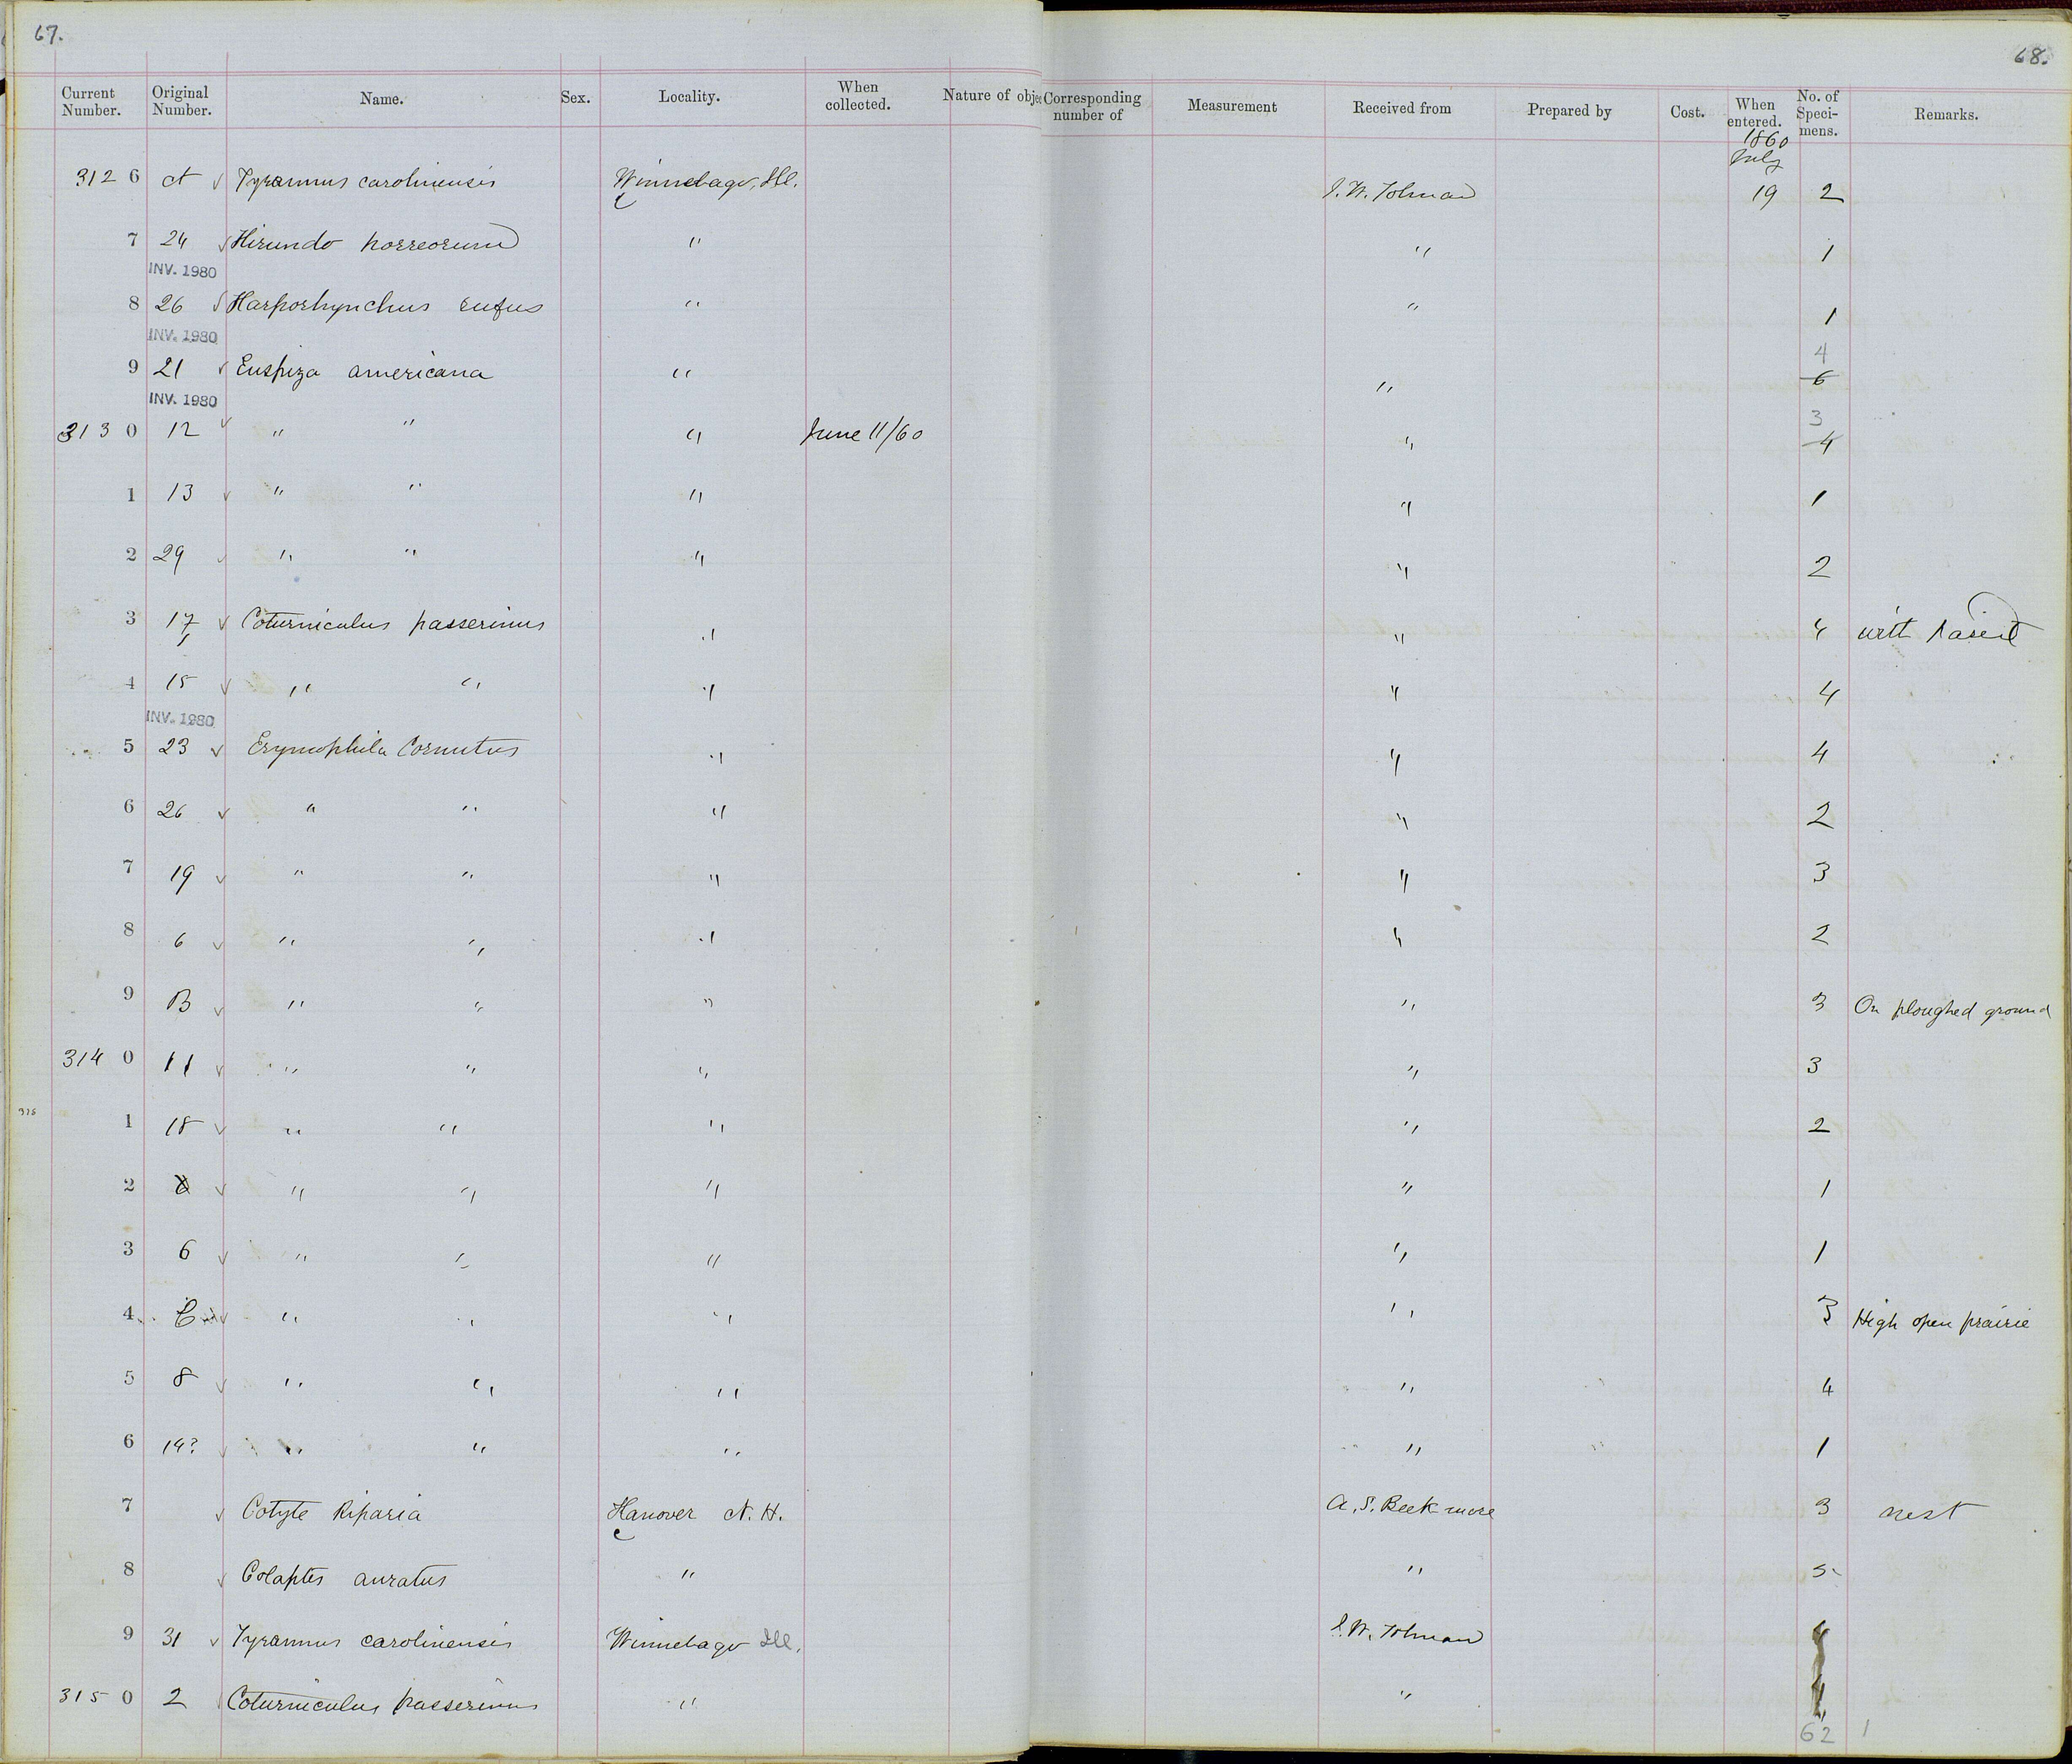 67.
68.
Current Number. Original Number. Name. Sex. Locality. When collected. Nature of obje Corresponding number of Measurement Received from Prepared by Cost. When entered. No. of Speci- mens. Remarks.
1860
July
3126 A ✓ Tyrannus carolinensis Winnebago, Ill. I. W. Tolman 19 2
7 24 ✓ Hirundo horreorum " " 1
INV. 1980
8 26 ✓ Harporhynchus rufus " " 1
INV. 1980
9 21 ✓ Euspiza americana " " 6 4
INV. 1980
3130 12 ✓ " " " June 11/60 " 4 3
1 13 ✓ " " " " 1
2 29 ✓ " " " " 2
3 17 ✓ Coturniculus passerinus " " 4 with parent
4 15 ✓ " " " " 4
INV. 1980
5 23 ✓ Erymophila Cornutus " " 4
6 26 ✓ " " " " 2
7 19 ✓ " " " " 3
8 6 ✓ " " " " 2
9 B ✓ " " " " 3 On ploughed ground
3140 11 ✓ " " " " 3
1 18 ✓ " " " " 2
2 ✓ " " " " 1
3 6 ✓ " " " " 1
4 C ✓ " " " " 3 High open prairie
5 8 ✓ " " " " 4
6 14? ✓ " " " " 1
7 ✓ Cotyle Riparia Hanover N. H. A. S. Beekmore 3 nest
8 ✓ Colaptes auratus " " 5
9 31 ✓ Tyrannus carolinensis Winnebago Ill. I. W. Tolman
3150 2 Coturniculus passerinus " "
62 1